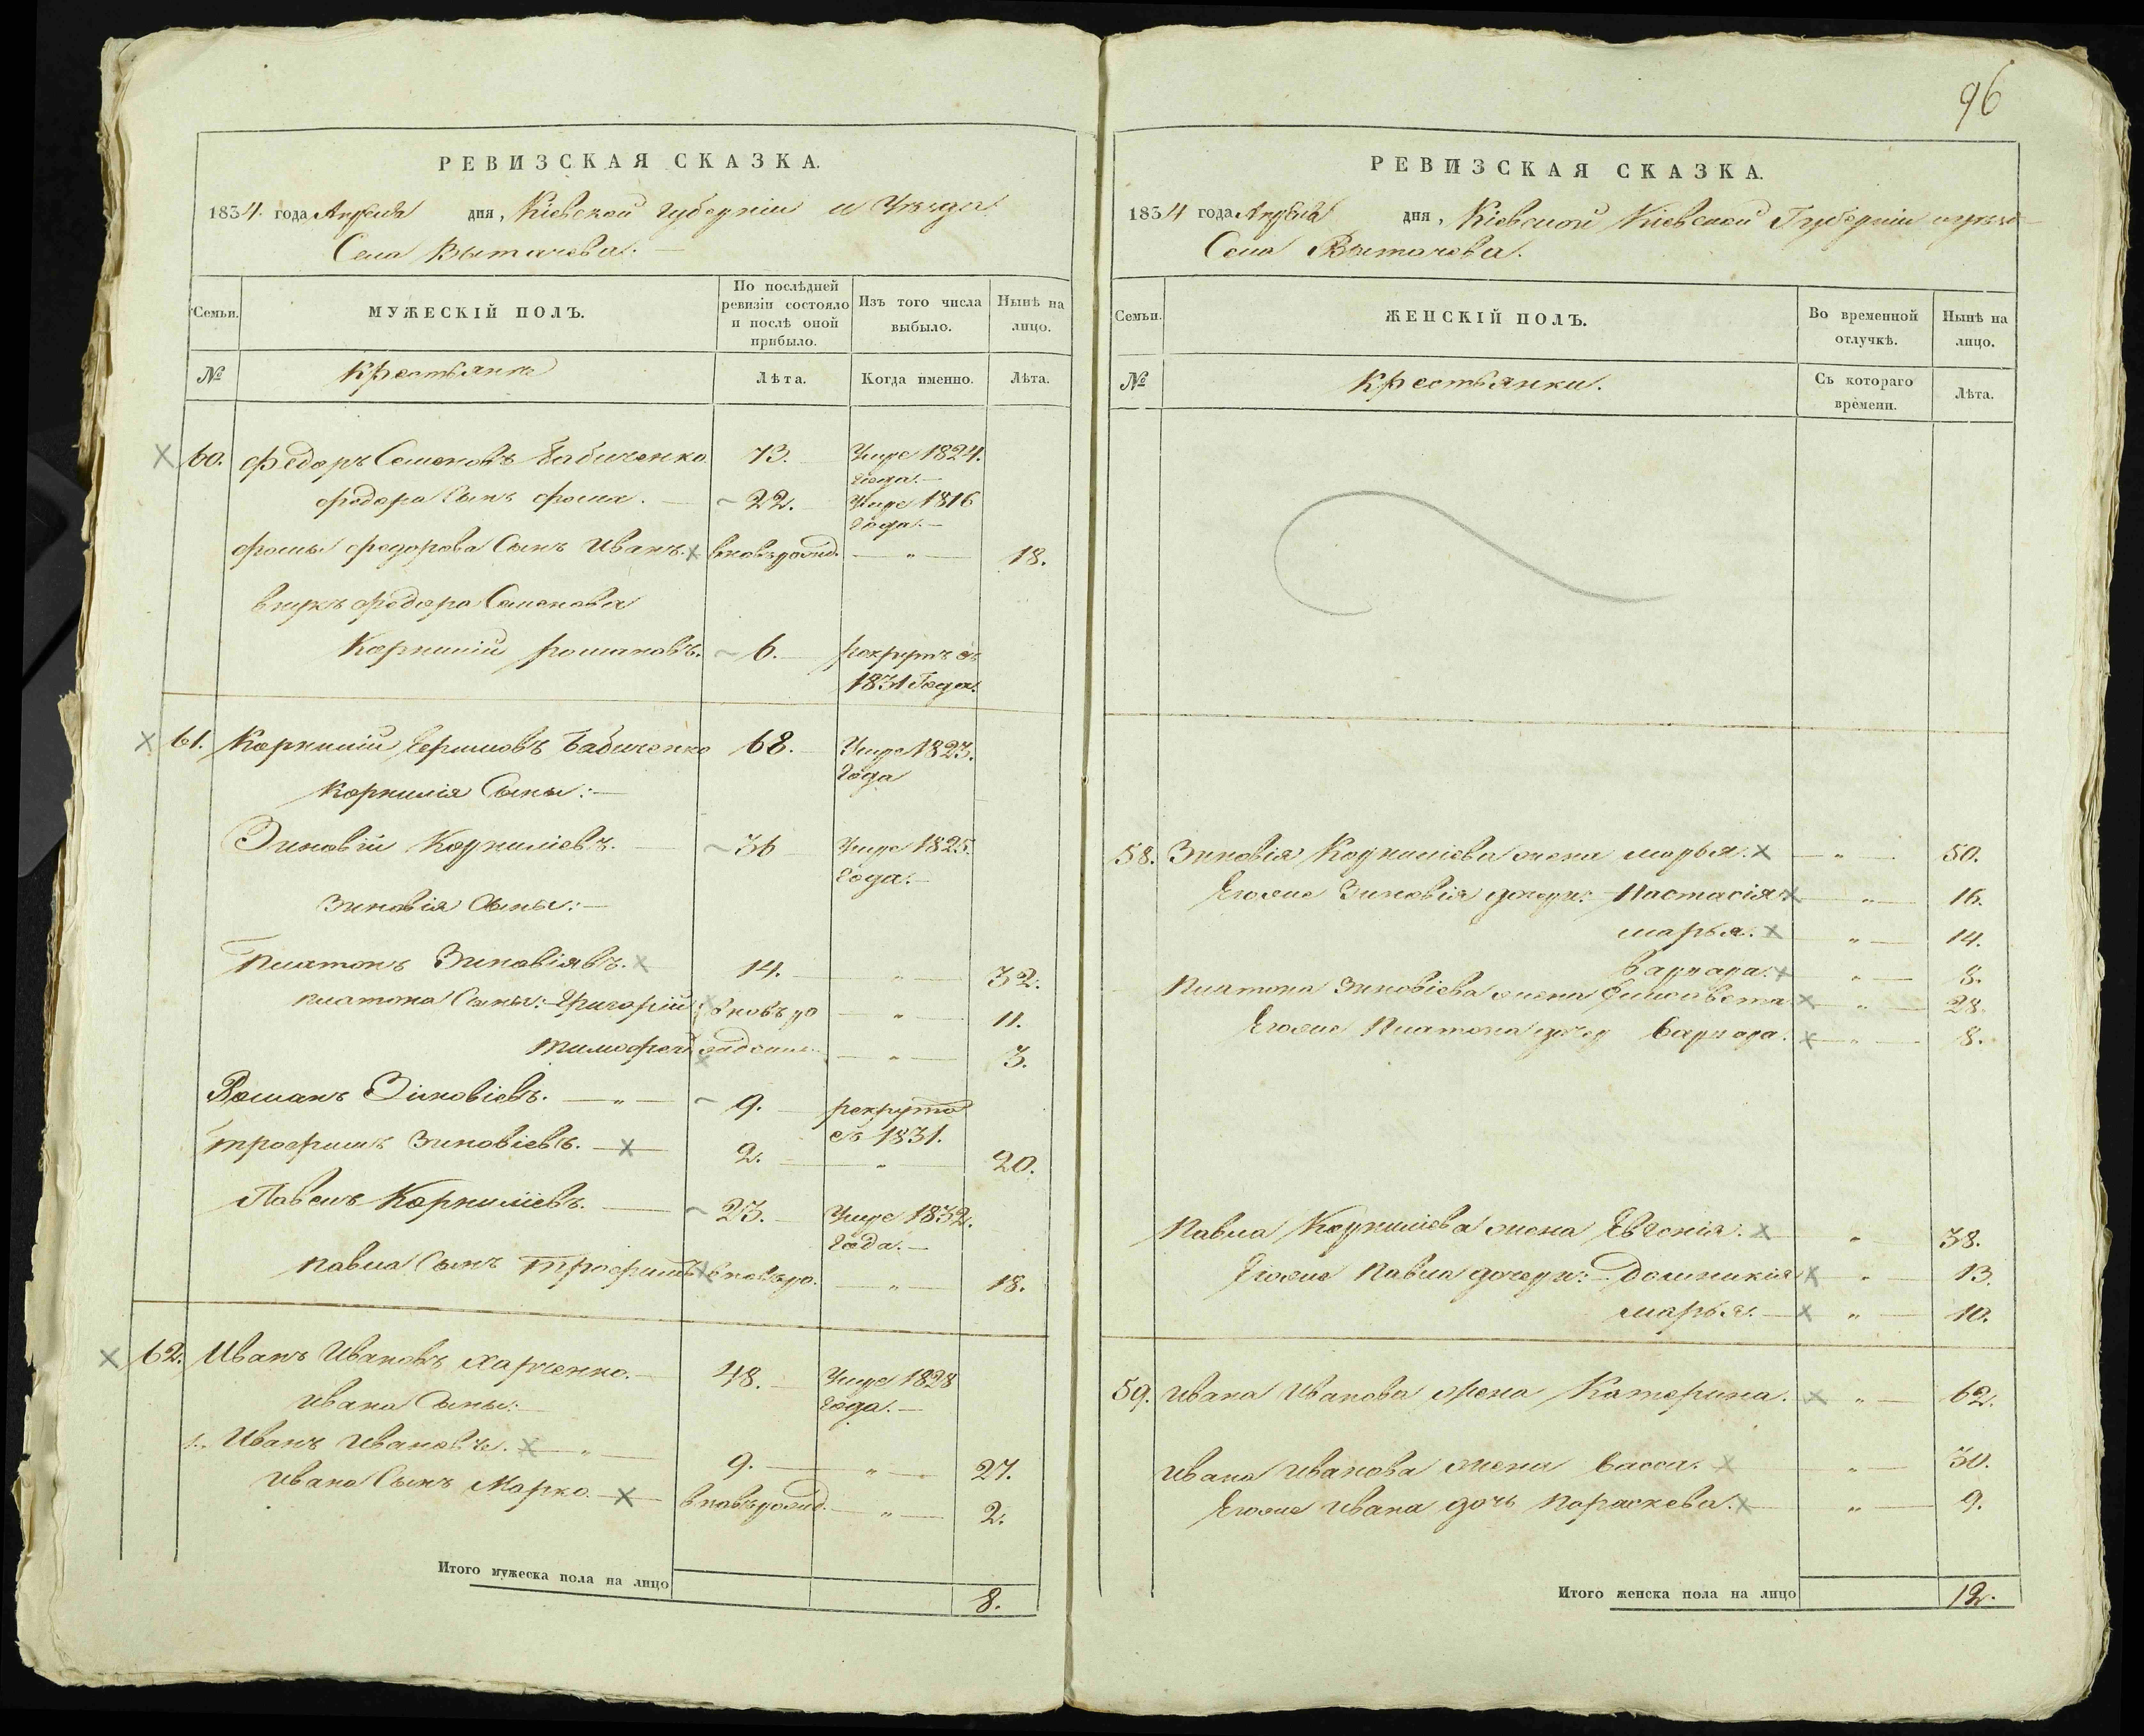 96
РЕВИЗСКАЯ СКАЗКА.
1834. года Апреля дня, Кіевской губерніи и Уезда
Села Вытачева.
Семьи. МУЖЕСКІЙ ПОЛЪ. По послѣдней ревизіи состояло и послѣ оной прибыло. Изъ того числа выбыло. Нынѣ на лицо.
№ Крестьяне Лѣта. Когда именно. Лѣта.
60. Федоръ Семеновъ Бабиченко 73. Умре 1824. Года.
Федора Сынъ Фома. 22. Умре 1816 Года.
Фомы Федорова Сынъ Иванъ. вновьрожд. „ 18.
внукъ Федора Семенова
Корнилій Романовъ. 6. рекрутъ съ 1831 Года.
61. Корнилій Ефимовъ Бабиченко 68. Умре 1823. Года
Корнилія Сыны:
Зиновій Корниліевъ. 36 Умре 1825. Года.
Зиновія Сыны:
Платонъ Зиновіявъ. 14. „ 32.
Платона Сыны: Григорій вновьро „ 11.
Тимофей „ 3.
Романъ Зиновіевъ. „ 9. рекрутъ съ 1831.
Трофимъ Зиновіевъ. 2. „ 20.
Павелъ Корниліевъ. 23. Умре 1832. Года.
Павла Сынъ Трофимъ вновьро. „ 18.
62. Иванъ Ивановъ Харченко. 48. Умре 1828 Года.
Ивана Сыны:
1. Иванъ Ивановъ. „ 9. „ 27.
Ивана Сынъ Марко. вновьрожд. „ 2.
Итого мужеска пола на лицо 8.
РЕВИЗСКАЯ СКАЗКА.
1834 года Апреля дня, Кіевской Кіевской Губерніи
Села Вытачева.
Семьи. ЖЕНСКІЙ ПОЛЪ. Во временной отлучкѣ. Нынѣ на лицо.
№ Крестьянки. Съ котораго времени. Лѣта.
58. Зиновія Корниліева жена Марья. „ 50.
Егоже Зиновія дочери: Настасія „ 16.
Марья. „ 14.
Варвара. „ 8.
Платона Зиновіева жена Елисавета „ 28.
Егоже Платона дочер Варвара. „ 8.
Павла Корниліева жена Евгенія. „ 38.
Егоже Павла дочери: Домникія „ 13.
Марья. „ 10.
59. Ивана Иванова жена Катерина. „ 62.
Ивана Иванова жена Васса. „ 30.
Егоже Ивана дочь Параскева. „ 9.
Итого женска пола на лицо 12.